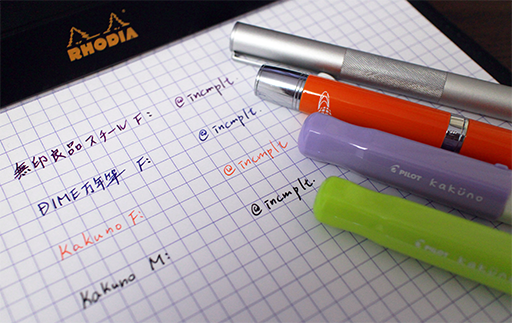 RHODIA
無印良品スチール F: @incmplt
DIME万年筆 F: @incmplt.
Kakuno F: @incmplt
Kakuno M: @incmplt.
PILOT kaküno
PILOT kaküno